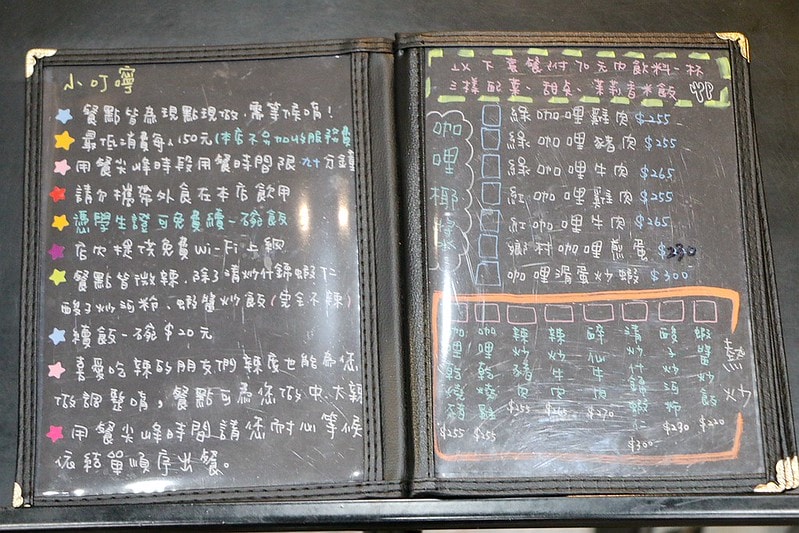 小叮嚀
餐點皆為現點現做,需等候唷!
最低消費每人150元(本店不另加收服務費
用餐尖峰時段用餐時間限九十分鐘
請勿攜帶外食在本店飲用
憑學生證可免費續一碗飯
店內提供免費Wi-Fi上網
餐點皆微辣,除了清炒什錦蝦仁
酸子炒河粉、蝦醬炒飯(完全不辣)
續飯一碗$20元
喜愛吃辣的朋友們辣度也能為您
做調整唷,餐點可為您做中、大辣
用餐尖峰時間請您耐心等候
依結單順序出餐。
以下套餐附70元內飲料一杯
三樣配菜、甜點、茉莉香米飯
咖哩椰漿
綠咖哩雞肉$255
綠咖哩豬肉$255
綠咖哩牛肉$265
紅咖哩雞肉$255
紅咖哩牛肉$265
咖哩煎蛋$230
咖哩滑蛋炒蝦$300
熱炒
咖哩 豬$255
咖哩 雞$255
辣炒豬肉$255
辣炒牛肉$265
醉仙牛肉$270
清炒什錦蝦仁$300
酸子炒河粉$230
蝦醬炒飯$220